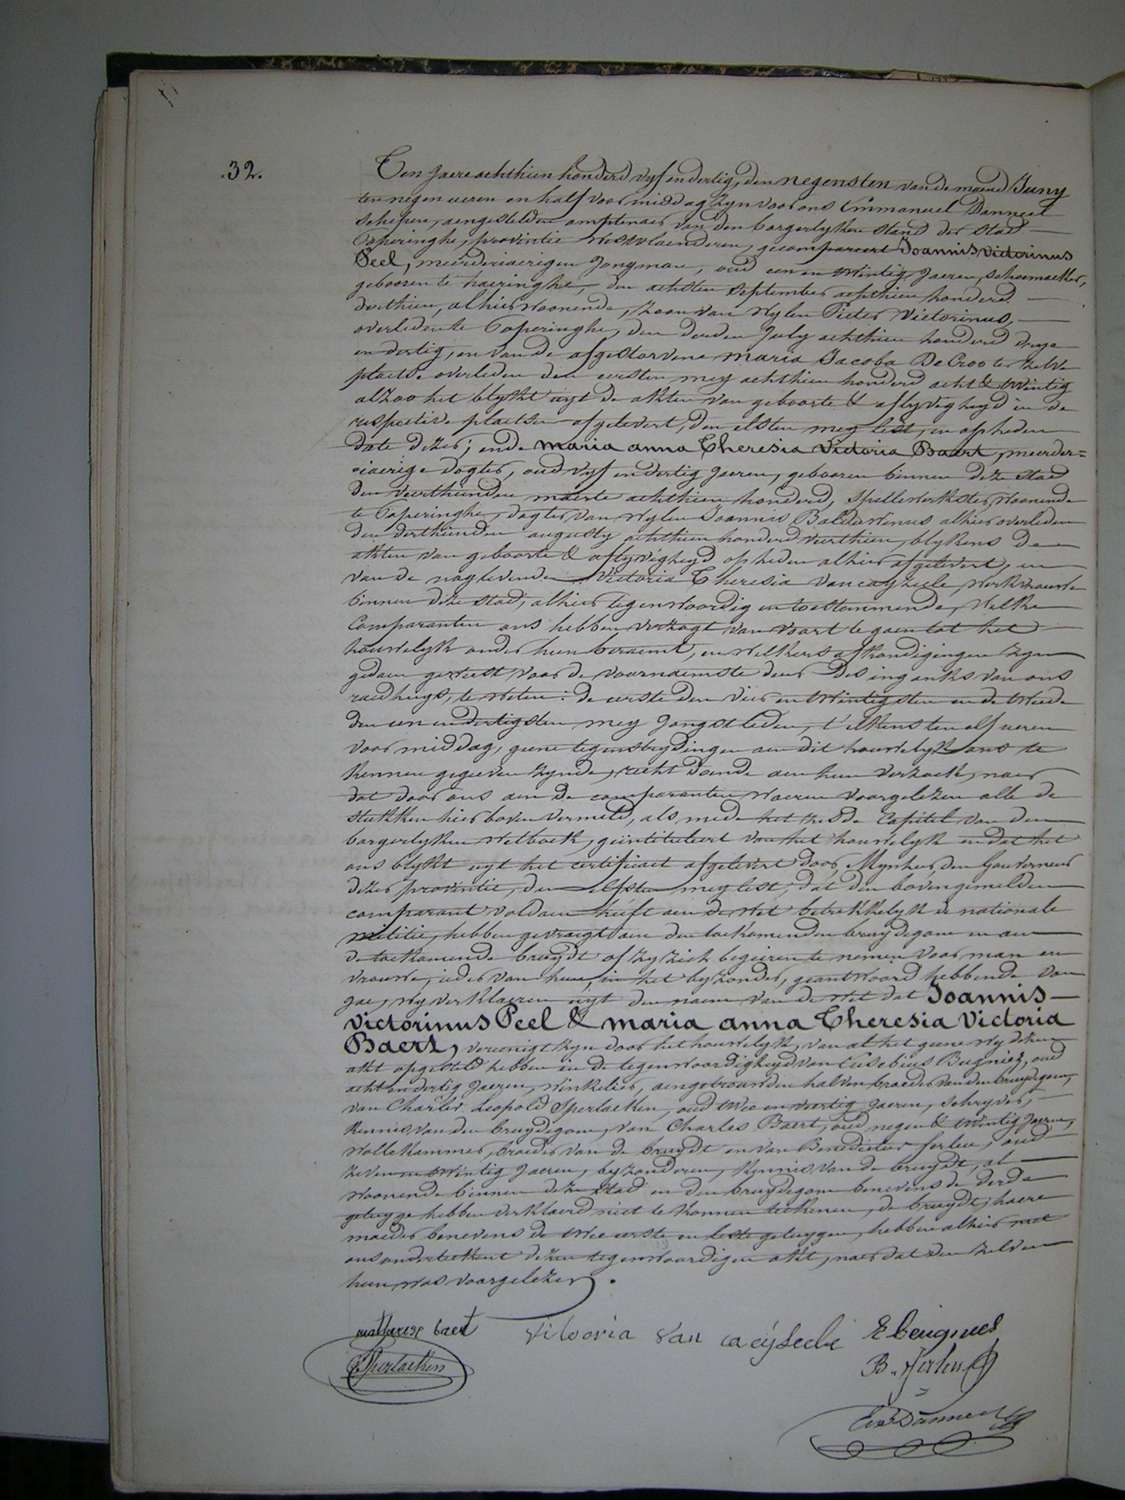 .32.
Ten jaere achthien honderd vyf en dertig, den negensten van de maend Juny
ten negen ueren en half voormiddag zyn voor ons Emmanuel Danneel
schepen, aengestelden amptenaer van den borgerlyken stand der stad
Poperinghe, provintie Westvlaenderen, gecompareert Joannis Victorinus
Peel, meerderjaerigen jongman, oud een en twintig jaeren, schoenmaeker,
geboren te haeringhe, den achsten september achthien honderd
derthien, alhier woonende, zoon van wylen Pieter Victorinus,
overleden te Poperinghe, den derden July achthien honderd drye
en dertig, en van de afgestorvene Maria Jacoba De Croo ter zelve
plaetse overleden den eersten mey achthien honderd acht & twintig
alzoo het blykt uyt de akten van geboorte & aflyvigheyd in de
respective plaetsen afgelevert, den elfsten mey lest, en op heden
date dezer; ende maria anna Theresia Victoria Baert, meerder=
jaerige dogter, oud vyf en dertig jaeren, geboren binnen deze stad
den veerthienden maerte achthien honderd, spellewerkster, woonende
te Poperinghe, dogter van wylen Joannis Baldewinus alhier overleden
den derthienden augusty achthien honderd veerthien, blykens de
akten van geboorte & aflyvigheyd op heden alhier afgelevert, en
van de naglevende Victoria Theresia Vancayzeele, werkvrouwe
binnen deze stad, alhier tegenwoordig en toestemmende, welke
comparanten ons hebben verzogt van voort te gaen tot het
houwelyk onder hun beraemt, en welkers afkondigingen zyn
gedaen geweest voor de voornaemste deur des ingangs van ons
raedhuys, te weten: de eerste den vier en twintigsten en de tweede
den een en dertigsten mey jongstleden, t'elkens ten elf ueren
voormiddag, geene tegenstrydingen aen dit houwelyk ons te
kennen gegeven zynde, recht doende aen hun verzoek, naer
dat door ons aen de comparanten waeren voorgelezen alle de
stukken hierboven vermeld, als mede het zesde Capitel van den
borgerlyken wetboek, geintituleert van het houwelyk en dat het
ons blykt uyt het certificaet afgelevert door Mynheer den Gouverneur
dezer provintie, den elfsten mey lest, dat den bovengemelden
comparant voldaen heeft aen de wet betrekkelyk de nationale
militie, hebben gevraegt aen den toekomenden bruydegom en aen
de toekomende bruydt of zy zich begeeren te nemen voor man en
vrouwe, ieder van hun, in het byzonder, geantwoord hebbende van
Jae, wy verklaeren uyt den naem van de wet dat Joannis
Victorinus Peel & maria anna Theresia Victoria
Baert, vereenigt zyn door het houwelyk, van al het geene wy dezen
akt opgesteld hebben in de tegenwoordigheyd van Eusebius Bugniez, oud
acht en dertig jaeren, winkelier, aengetrouwden halven broeder van den bruydegom,
van Charles Leopold Sperlaeken, oud twee en veertig jaeren, schryver,
kennis van den bruydegom, van Charles Baert, oud negen & twintig jaeren,
wollekammer, broeder van de bruydt en van Benedictus ferlin, oud
zeven en twintig jaeren, byzonderen, kennis van de bruydt, al
woonende binnen deze stad en den bruydegom benevens de derde
getuyge hebben verklaerd niet te konnen teekenen, de bruydt, haere
moeder benevens de twee eerste en leste getuygen, hebben alhier met
ons onderteekent dezen tegenwoordigen akt, naer dat den zelven
hun was voorgelezen.
Victoria Van caÿseele
Sperlaeken
B. ferlin
Em Danneel